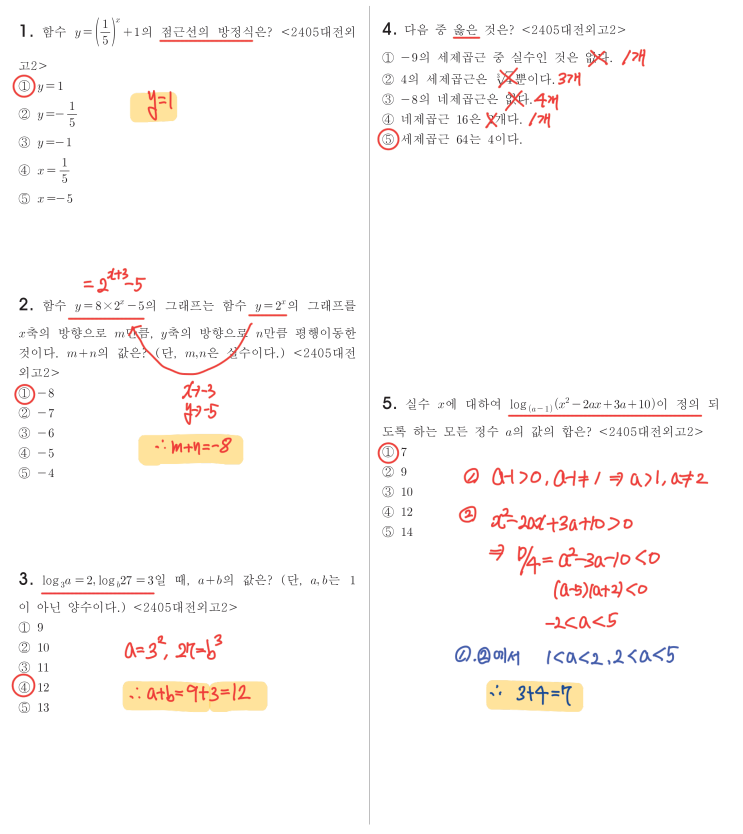 1. 함수 y=(1/5)^x+1의 점근선의 방정식은? <2405대전외
고2>
① y=1
② y=-1/5
③ y=-1
④ x=1/5
⑤ x=-5
y=1
= 2^x+3 -5
2. 함수 y=8×2^x-5의 그래프는 함수 y=2^x의 그래프를
x축의 방향으로 m만큼, y축의 방향으로 n만큼 평행이동한
것이다. m+n의 값은? (단, m,n은 실수이다.) <2405대전
외고2>
① -8
② -7
③ -6
④ -5
⑤ -4
x→-3
y→-5
∴ m+n=-8
3. log₃a=2, log_b 27=3일 때, a+b의 값은? (단, a,b는 1
이 아닌 양수이다.) <2405대전외고2>
① 9
② 10
③ 11
④ 12
⑤ 13
a=3², 27=b³
∴ a+b=9+3=12
4. 다음 중 옳은 것은? <2405대전외고2>
① -9의 세제곱근 중 실수인 것은 없다. 1개
② 4의 세제곱근은 뿐이다. 3개
③ -8의 네제곱근은 없다. 4개
④ 네제곱근 16은 개다. 1개
⑤ 세제곱근 64는 4이다.
5. 실수 x에 대하여 log_(a-1)(x²-2ax+3a+10)이 정의 되
도록 하는 모든 정수 a의 값의 합은? <2405대전외고2>
① 7
② 9
③ 10
④ 12
⑤ 14
① a-1>0, a-1≠1 ⇒ a>1, a≠2
② x²-2ax+3a+10>0
⇒ D/4=a²-3a-10<0
(a-5)(a+2)<0
-2<a<5
①,②에서 1<a<2, 2<a<5
∴ 3+4=7